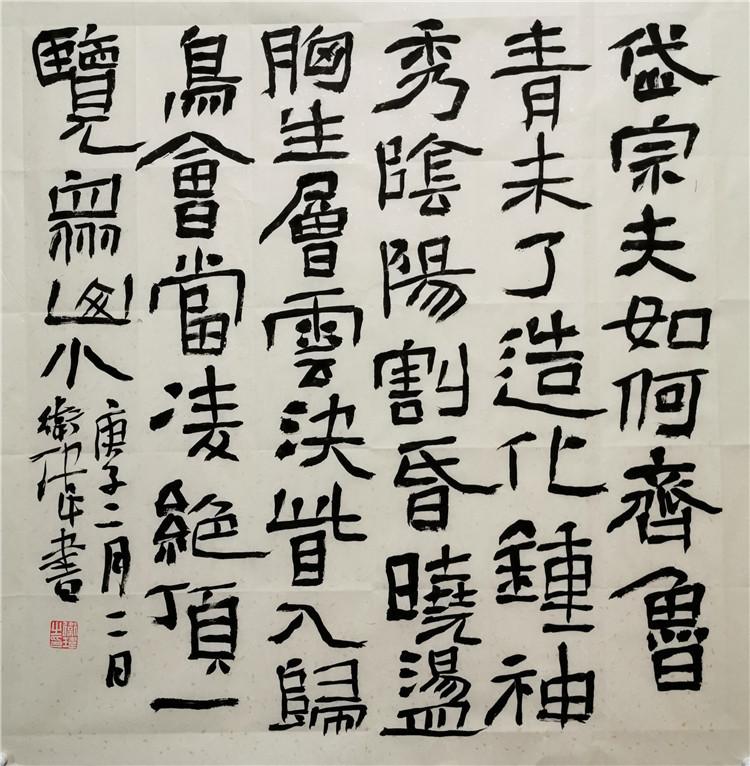 岱宗夫如何齊魯
青未了造化鍾神
秀陰陽割昏曉盪
胸生層雲決眥入歸
鳥會當凌絕頂一
覽衆山小
庚子二月二日
衛書